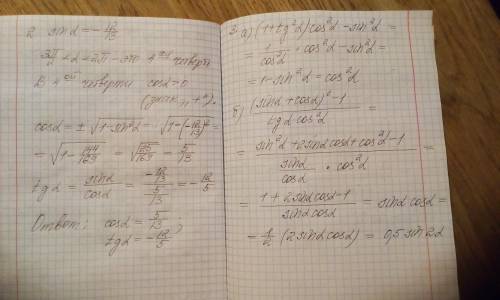 2. sinα = -12/13
3π/2 < α < 2π - это 4ой четверть
В 4ой четверти cosα > 0
(знак „+“).
cosα = ± √(1-sin²α) = √(1-(-12/13)²) =
= √(1-144/169) = √(25/169) = 5/13
tgα = sinα/cosα = (-12/13)/(5/13) = -12/5
Ответ: cosα = 5/13 ;
tgα = -12/5
3. а) (1+tg²α)cos²α - sin²α =
= 1/cos²α · cos²α - sin²α =
= 1-sin²α = cos²α
б) ((sinα+cosα)²-1)/(tgα cos²α) =
= (sin²α+2sinα cosα+cos²α-1)/(sinα/cosα · cos²α) =
= (1+2sinα cosα-1)/(sinα cosα) = sinα cosα =
= 1/2 (2sinα cosα) = 0,5 sin2α